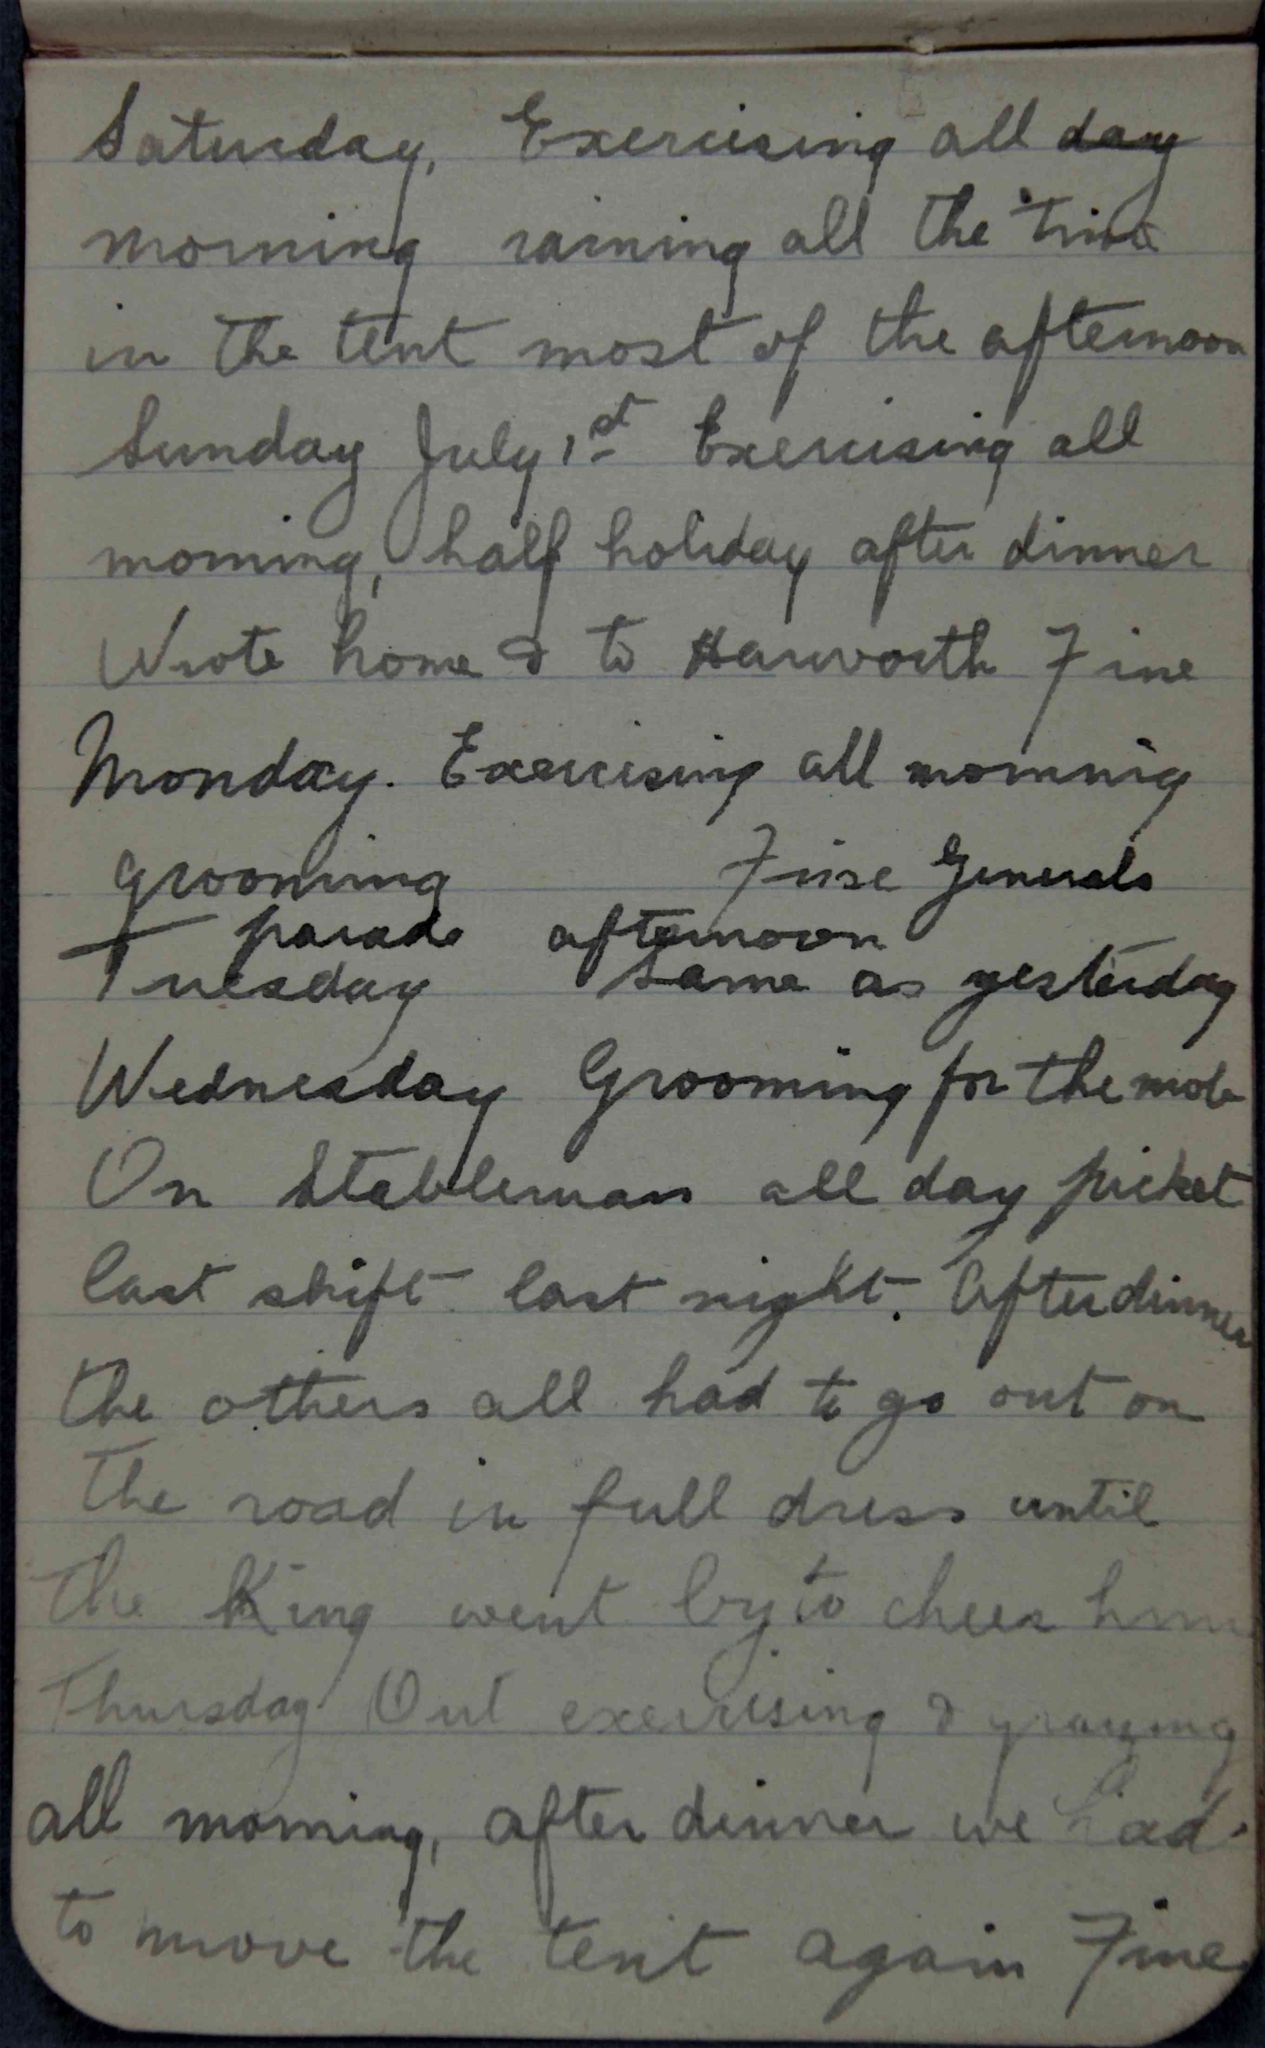 Saturday, Exercising all day
morning raining all the time
in the tent most of the afternoon
Sunday July 1st Exercising all
morning, half holiday after dinner
Wrote home & to Harworth Fine
Monday. Exercising all morning
grooming Fine Generals
parade afternoon
Tuesday Same as yesterday
Wednesday Grooming for the mob
On Stableman all day picket
last shift last night. After dinner
the others all had to go out on
the road in full dress until
the King went by to cheer him
Thursday Out exercising & grazing
all morning, after dinner we had
to move the tent again Fine